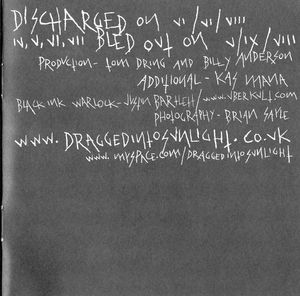 DISCHARGED ON VI/VI/VIII
IV, V, VI, VII BLED OUT ON V/IX/VIII
PRODUCTION- TOM DRING AND BILLY ANDERSON
ADDITIONAL - KAS MANIA
BLACK INK WARLOCK- JUSTIN BARTLETT/WWW.VBERKULT.COM
PHOTOGRAPHY - BRIAN SAYLE
WWW.DRAGGEDINTOSUNLIGHT.CO.UK
WWW.MYSPACE.COM/DRAGGEDINTOSUNLIGHT